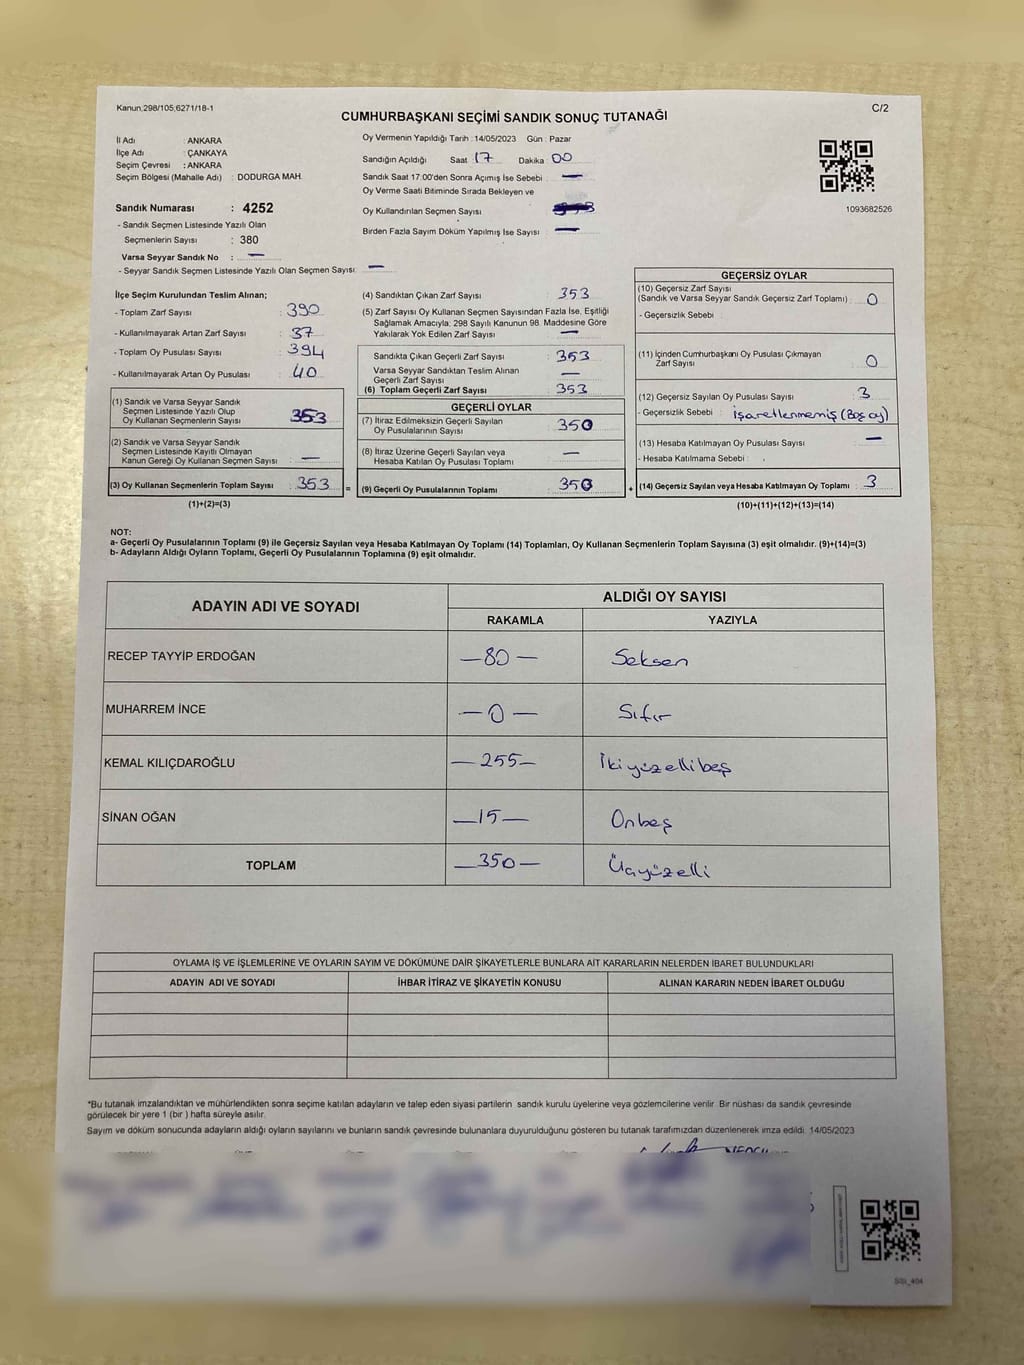 Kanun,298/105,6271/18-1
C/2
CUMHURBAŞKANI SEÇİMİ SANDIK SONUÇ TUTANAĞI
İl Adı : ANKARA
İlçe Adı : ÇANKAYA
Seçim Çevresi : ANKARA
Seçim Bölgesi (Mahalle Adı) : DODURGA MAH.
Sandık Numarası : 4252
- Sandık Seçmen Listesinde Yazılı Olan
Seçmenlerin Sayısı : 380
Varsa Seyyar Sandık No : —
- Seyyar Sandık Seçmen Listesinde Yazılı Olan Seçmen Sayısı: —
Oy Vermenin Yapıldığı Tarih : 14/05/2023 Gün : Pazar
Sandığın Açıldığı Saat 17 Dakika 00
Sandık Saat 17:00'den Sonra Açımış İse Sebebi : —
Oy Verme Saati Bitiminde Sırada Bekleyen ve
Oy Kullandırılan Seçmen Sayısı
Birden Fazla Sayım Döküm Yapılmış İse Sayısı : —
1093682526
İlçe Seçim Kurulundan Teslim Alınan;
- Toplam Zarf Sayısı : 390
- Kullanılmayarak Artan Zarf Sayısı : 37
- Toplam Oy Pusulası Sayısı : 394
- Kullanılmayarak Artan Oy Pusulası : 40
(1) Sandık ve Varsa Seyyar Sandık
Seçmen Listesinde Yazılı Olup
Oy Kullanan Seçmenlerin Sayısı : 353
(2) Sandık ve Varsa Seyyar Sandık
Seçmen Listesinde Kayıtlı Olmayan
Kanun Gereği Oy Kullanan Seçmen Sayısı : —
(3) Oy Kullanan Seçmenlerin Toplam Sayısı : 353 =
(1)+(2)=(3)
(4) Sandıktan Çıkan Zarf Sayısı : 353
(5) Zarf Sayısı Oy Kullanan Seçmen Sayısından Fazla İse, Eşitliği
Sağlamak Amacıyla, 298 Sayılı Kanunun 98. Maddesine Göre
Yakılarak Yok Edilen Zarf Sayısı : —
Sandıkta Çıkan Geçerli Zarf Sayısı : 353
Varsa Seyyar Sandıktan Teslim Alınan
Geçerli Zarf Sayısı : —
(6) Toplam Geçerli Zarf Sayısı : 353
GEÇERLİ OYLAR
(7) İtiraz Edilmeksizin Geçerli Sayılan
Oy Pusulalarının Sayısı : 350
(8) İtiraz Üzerine Geçerli Sayılan veya
Hesaba Katılan Oy Pusulası Toplamı : —
(9) Geçerli Oy Pusulalarının Toplamı : 350 +
GEÇERSİZ OYLAR
(10) Geçersiz Zarf Sayısı
(Sandık ve Varsa Seyyar Sandık Geçersiz Zarf Toplamı) : 0
- Geçersizlik Sebebi :
(11) İçinden Cumhurbaşkanı Oy Pusulası Çıkmayan
Zarf Sayısı : 0
(12) Geçersiz Sayılan Oy Pusulası Sayısı : 3
- Geçersizlik Sebebi : İşaretlenmemiş (Boş oy)
(13) Hesaba Katılmayan Oy Pusulası Sayısı : —
- Hesaba Katılmama Sebebi :
(14) Geçersiz Sayılan veya Hesaba Katılmayan Oy Toplamı : 3
(10)+(11)+(12)+(13)=(14)
NOT:
a- Geçerli Oy Pusulalarının Toplamı (9) ile Geçersiz Sayılan veya Hesaba Katılmayan Oy Toplamı (14) Toplamları, Oy Kullanan Seçmenlerin Toplam Sayısına (3) eşit olmalıdır. (9)+(14)=(3)
b- Adayların Aldığı Oyların Toplamı, Geçerli Oy Pusulalarının Toplamına (9) eşit olmalıdır.
ADAYIN ADI VE SOYADI
ALDIĞI OY SAYISI
RAKAMLA YAZIYLA
RECEP TAYYİP ERDOĞAN —80— Seksen
MUHARREM İNCE —0— Sıfır
KEMAL KILIÇDAROĞLU —255— İkiyüzellibeş
SİNAN OĞAN —15— Onbeş
TOPLAM —350— Üçyüzelli
OYLAMA İŞ VE İŞLEMLERİNE VE OYLARIN SAYIM VE DÖKÜMÜNE DAİR ŞİKAYETLERLE BUNLARA AİT KARARLARIN NELERDEN İBARET BULUNDUKLARI
ADAYIN ADI VE SOYADI İHBAR İTİRAZ VE ŞİKAYETİN KONUSU ALINAN KARARIN NEDEN İBARET OLDUĞU
*Bu tutanak imzalandıktan ve mühürlendikten sonra seçime katılan adayların ve talep eden siyasi partilerin sandık kurulu üyelerine veya gözlemcilerine verilir. Bir nüshası da sandık çevresinde
görülecek bir yere 1 (bir ) hafta süreyle asılır.
Sayım ve döküm sonucunda adayların aldığı oyların sayılarını ve bunların sandık çevresinde bulunanlara duyurulduğunu gösteren bu tutanak tarafımızdan düzenlenerek imza edildi. 14/05/2023